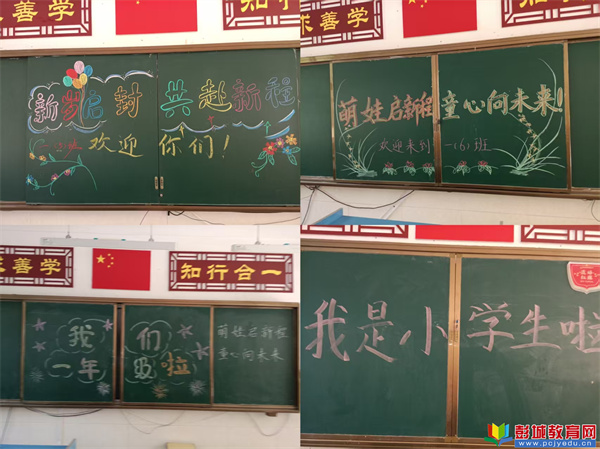 善学
知行
新岁启封 共赴新程
欢迎你们！
求善学
知行
萌娃启新程 童心向未来！
欢迎来到一(6)班
求善学
知行合一
我们
一年级啦
萌娃启新程
童心向未来
我是小学生啦
彭城教育网
www.pcjyedu.cn